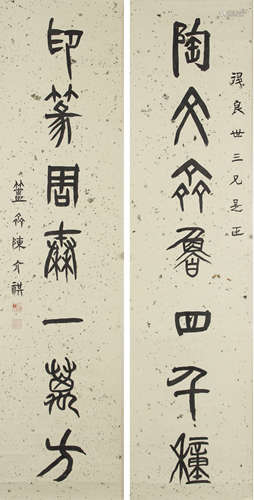 陶文齊魯四千種
良世三兄是正
印篆周秦一萬方
簠齋陳介祺